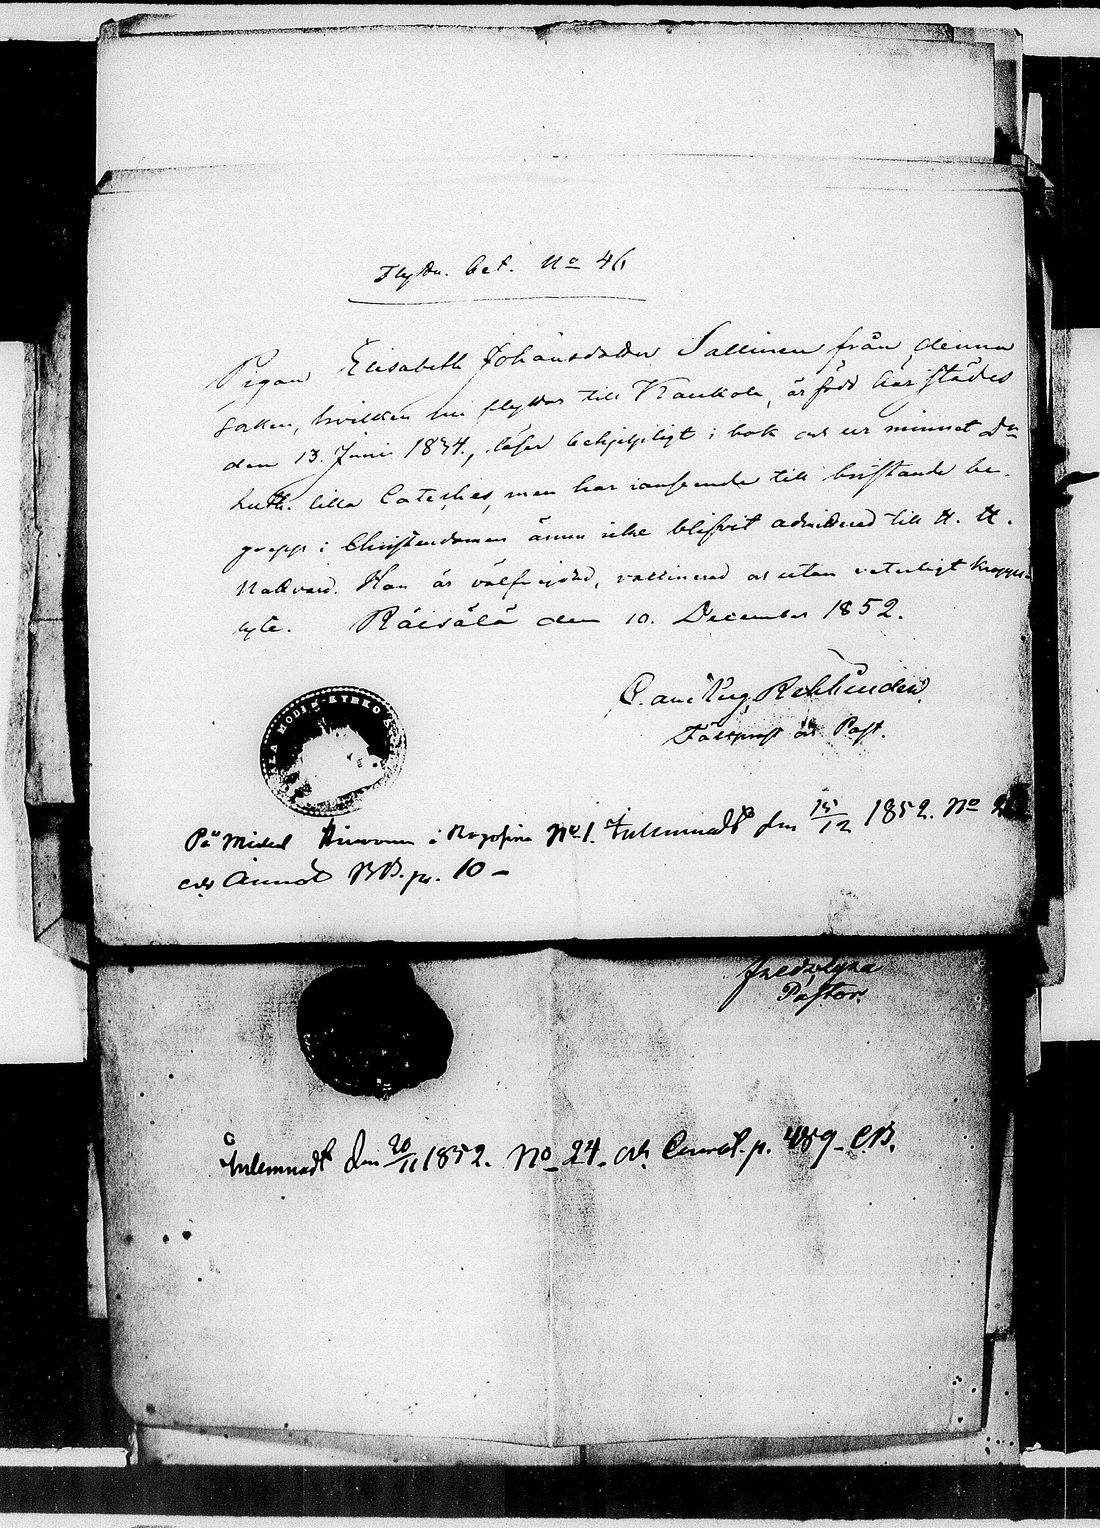 Flyttn. bet. No 46
Pigan Elisabeth Johansdotter Sallinen från denna
Soken, hvilken nu flyttar till Kaukola, är född här städes
den 13. Juni 1834., läser behjelpligt i bok och ur minnet Dr
Luth. lilla Cateches, men har i anseende till bristande be-
grepp i Christendomen ännu icke blifvit admitterad till H. H.
Nattvard. Hon är välfrejdad, vaccinerad och utan veterligt kropps-
lyte. Räisälä den 10. December 1852.
Prost och Past.
MODER KYRKO
På Michel i No 1. Inlemnadt den 15/12 1852. No
och Annot. BB. p. 10 -
Pastor.
Inlemnadt den 20/11 1852. No 24. och Annot. p. 489. CB.